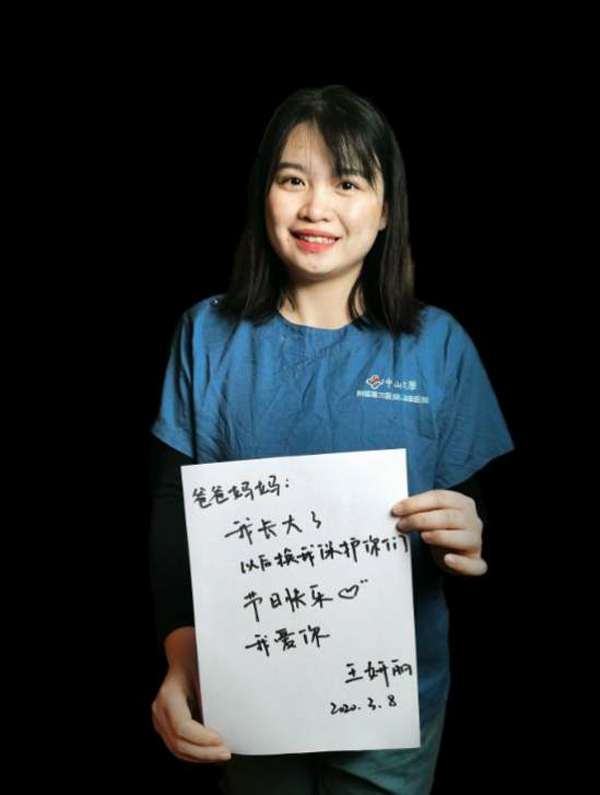 中山大學
爸爸妈妈：
我长大了
以后换我保护你们
节日快乐♡
我爱你
王妍丽
2020.3.8